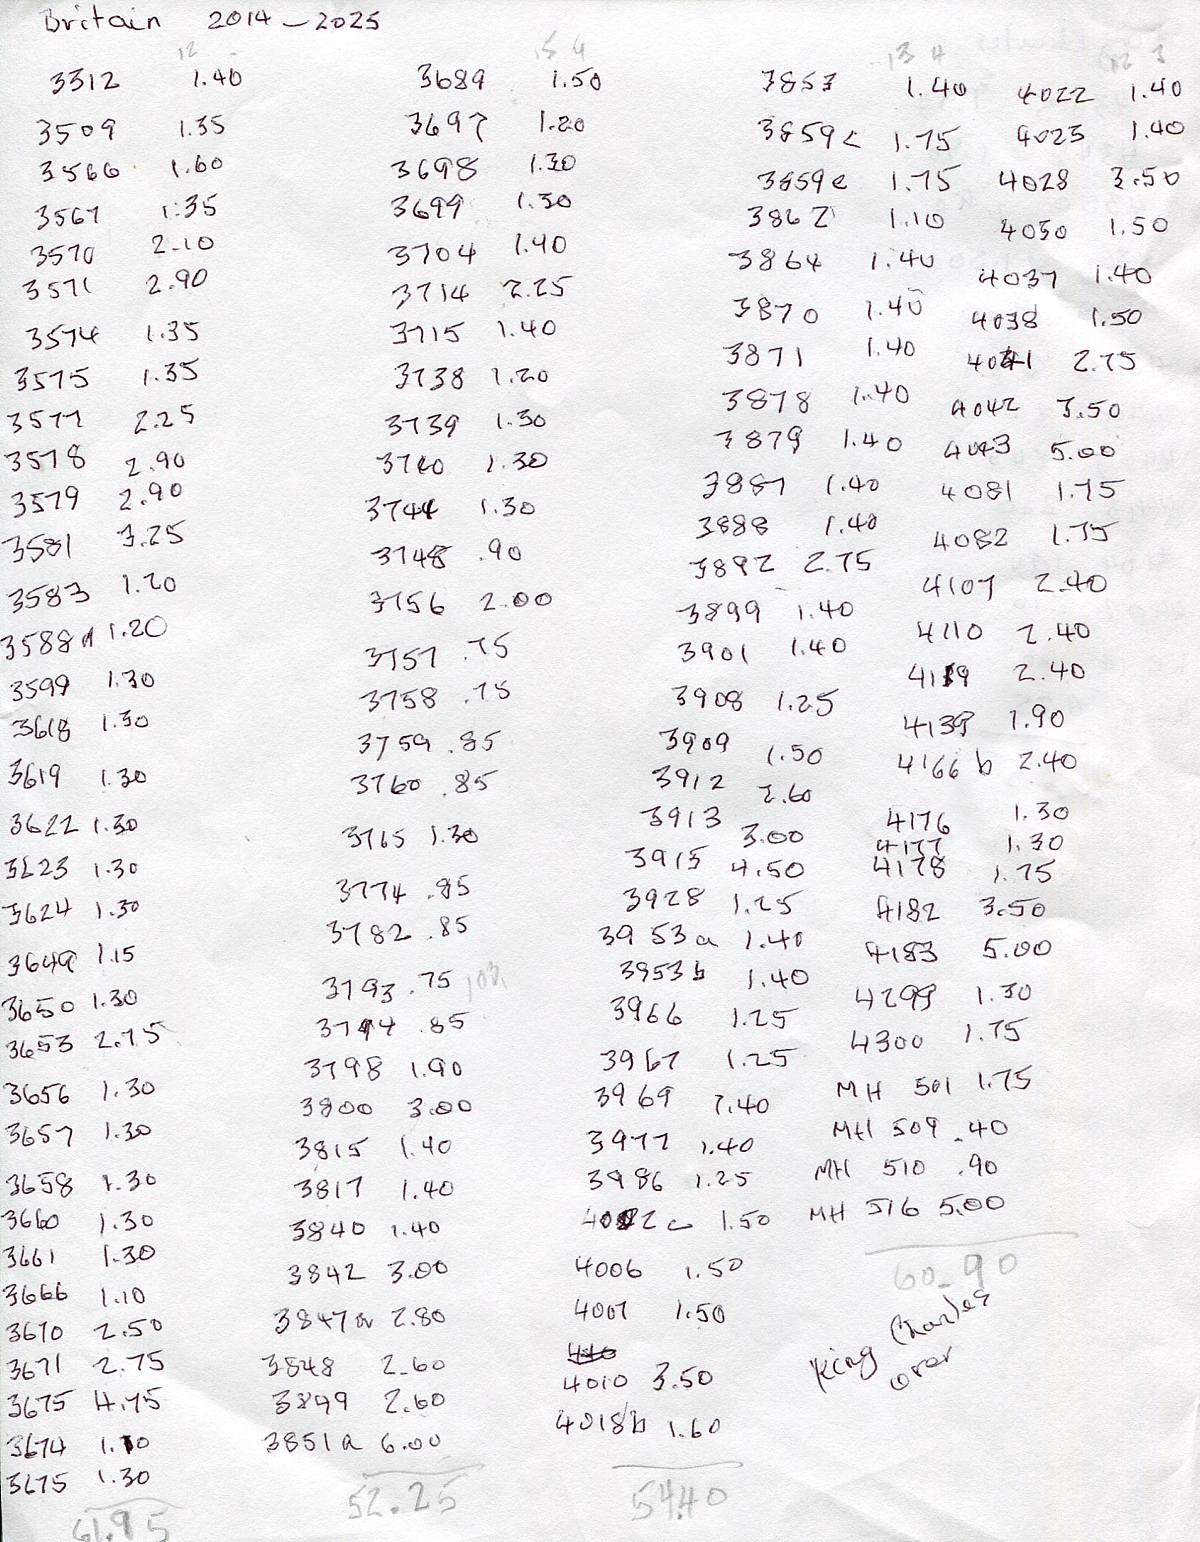 Britain 2014-2025
12
3312 1.40
3509 1.35
3566 1.60
3567 1.35
3570 2.10
3571 2.90
3574 1.35
3575 1.35
3577 2.25
3578 2.90
3579 2.90
3581 3.25
3583 1.20
3588a 1.20
3599 1.30
3618 1.30
3619 1.30
3622 1.30
3623 1.30
3624 1.30
3649 1.15
3650 1.30
3653 2.75
3656 1.30
3657 1.30
3658 1.30
3660 1.30
3661 1.30
3666 1.10
3670 2.50
3671 2.75
3675 4.75
3674 1.10
3675 1.30
61.95
15 4
3689 1.50
3697 1.20
3698 1.30
3699 1.30
3704 1.40
3714 2.25
3715 1.40
3738 1.20
3739 1.30
3740 1.30
3744 1.30
3748 .90
3756 2.00
3757 .75
3758 .75
3759 .85
3760 .85
3765 1.30
3774 .85
3782 .85
3793 .75
3794 .85
3798 1.90
3800 3.00
3815 1.40
3817 1.40
3840 1.40
3842 3.00
3847a 2.80
3848 2.60
3849 2.60
3851a 6.00
52.25
13 4
3853 1.40
3859c 1.75
3859e 1.75
3862 1.10
3864 1.40
3870 1.40
3871 1.40
3878 1.40
3879 1.40
3887 1.40
3888 1.40
3892 2.75
3899 1.40
3901 1.40
3908 1.25
3909 1.50
3912 2.60
3913 3.00
3915 4.50
3928 1.25
3953a 1.40
3953b 1.40
3966 1.25
3967 1.25
3969 2.40
3977 1.40
3986 1.25
1.50
4006 1.50
4007 1.50
4010 3.50
4018b 1.60
54.40
12 3
4022 1.40
4023 1.40
4028 3.50
4030 1.50
4037 1.40
4038 1.50
4041 2.75
4042 3.50
4043 5.00
4081 1.75
4082 1.75
4107 2.40
4110 2.40
4119 2.40
4139 1.90
4166b 2.40
4176 1.30
4177 1.30
4178 1.75
4182 3.50
4183 5.00
4299 1.30
4300 1.75
MH 501 1.75
MH 509 .40
MH 510 .90
MH 516 5.00
60.90
King Charles
over